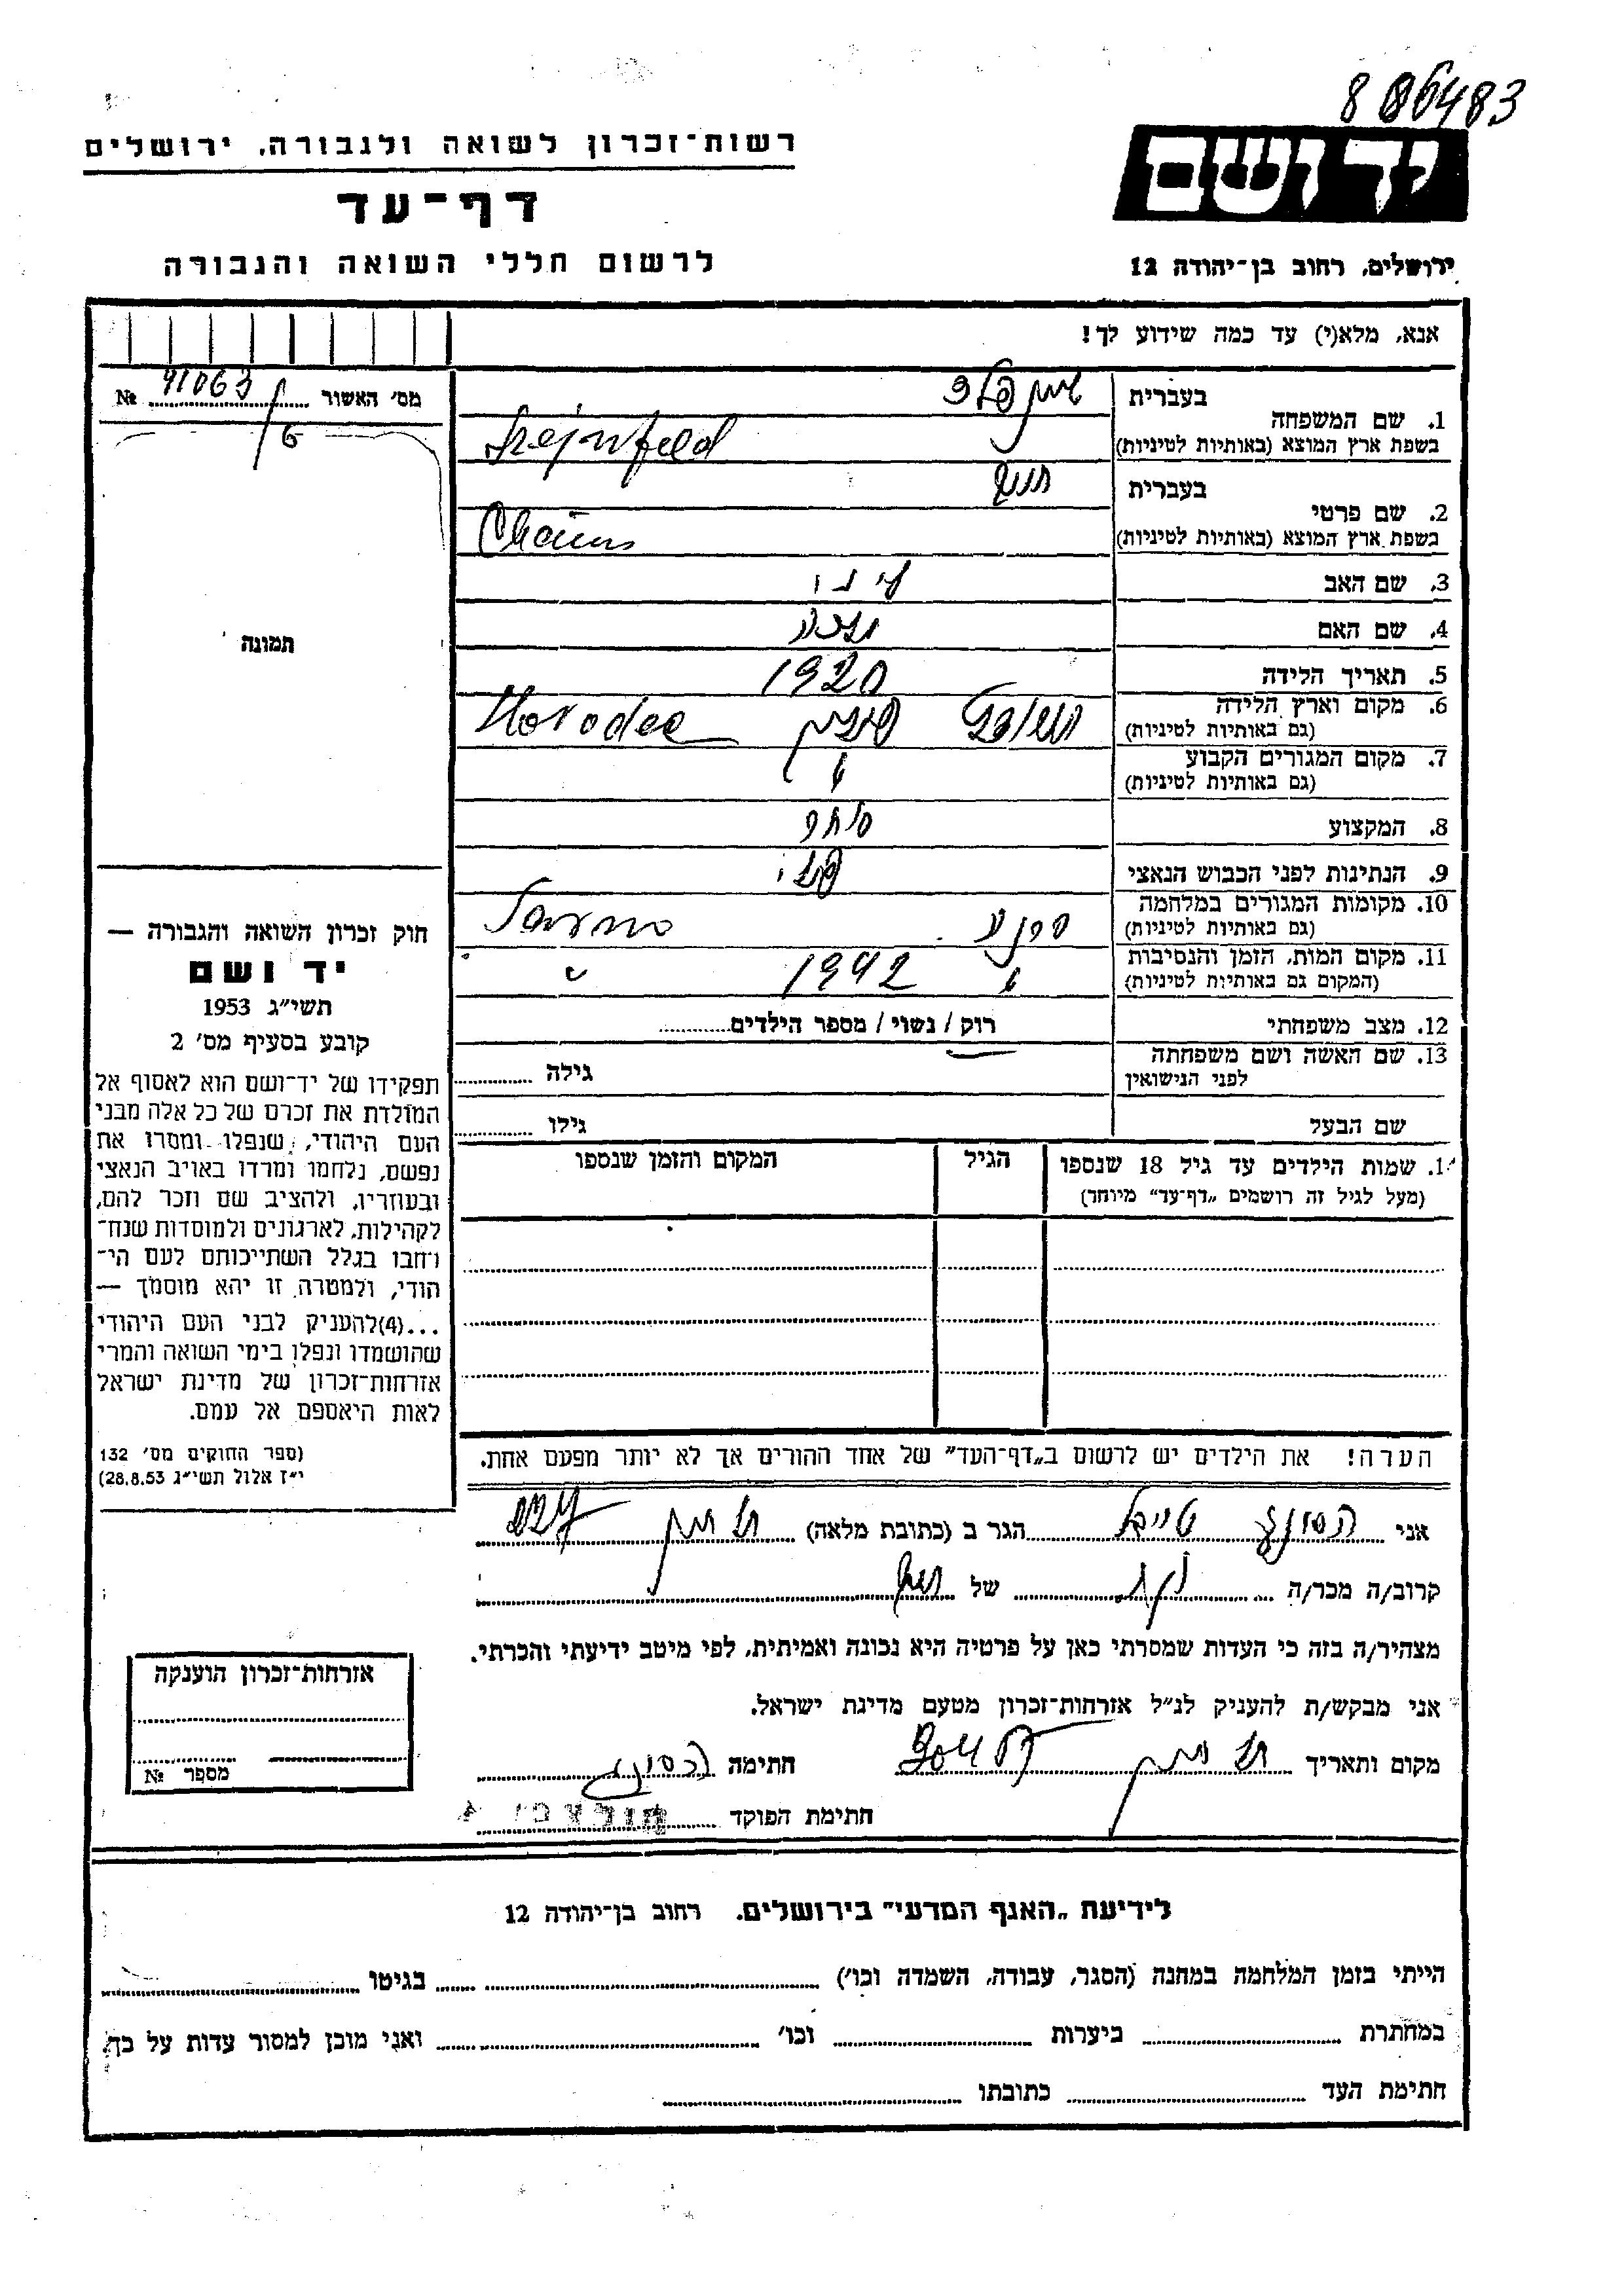 8 86483
יד ושם
ירושלים, רחוב בן־יהודה 12
רשות־זכרון לשואה ולגבורה, ירושלים
דף־עד
לרשום חללי השואה והגבורה
אנא, מלא(י) עד כמה שידוע לך!
מס' האשור № 91063
6
תמונה
חוק זכרון השואה והגבורה —
יד ושם
תשי״ג 1953
קובע בסעיף מס' 2
תפקידו של יד־ושם הוא לאסוף אל
המולדת את זכרם של כל אלה מבני
העם היהודי, שנפלו ומסרו את
נפשם, נלחמו ומרדו באויב הנאצי
ובעוזריו, ולהציב שם וזכר להם,
לקהילות, לארגונים ולמוסדות שנח־
רחבו בגלל השתייכותם לעם הי־
הודי, ולמטרה זו יהא מוסמך —
...(4)להעניק לבני העם היהודי
שהושמדו ונפלו בימי השואה והמרי
אזרחות־זכרון של מדינת ישראל
לאות היאספם אל עמם.
(ספר החוקים מס' 132
י״ז אלול תשי״ג 28.8.53)
בעברית שיינפלד
1. שם המשפחה
בשפת ארץ המוצא (באותיות לטיניות) Szejnfeld
בעברית
2. שם פרטי
בשפת ארץ המוצא (באותיות לטיניות) Chaim
3. שם האב
4. שם האם
5. תאריך הלידה 1920
6. מקום וארץ הלידה
(גם באותיות לטיניות) פולין Horodec
7. מקום המגורים הקבוע
(גם באותיות לטיניות) "
8. המקצוע סוחר
9. הנתינות לפני הכבוש הנאצי פולני
10. מקומות המגורים במלחמה
(גם באותיות לטיניות) סרנע Sarno
11. מקום המות, הזמן והנסיבות
(המקום גם באותיות לטיניות) " 1942 "
12. מצב משפחתי רוק / נשוי / מספר הילדים
13. שם האשה ושם משפחתה
לפני הנישואין גילה
שם הבעל גילו
1. שמות הילדים עד גיל 18 שנספו הגיל המקום והזמן שנספו
(מעל לגיל זה רושמים „דף־עד״ מיוחד)
הערה! את הילדים יש לרשום ב„דף־העד״ של אחד ההורים אך לא יותר מפעם אחת.
אני טייבל הגר ב (כתובת מלאה)
קרוב/ה מכר/ה של
מצהיר/ה בזה כי העדות שמסרתי כאן על פרטיה היא נכונה ואמיתית, לפי מיטב ידיעתי והכרתי.
אני מבקש/ת להעניק לנ״ל אזרחות־זכרון מטעם מדינת ישראל.
מקום ותאריך חתימה
חתימת הפוקד
אזרחות־זכרון הוענקה
מספר №
לידיעת „האגף המדעי״ בירושלים. רחוב בן־יהודה 12
הייתי בזמן המלחמה במחנה (הסגר, עבודה, השמדה וכו') בגיטו
במחתרת ביערות וכו' ואני מוכן למסור עדות על כך.
חתימת העד כתובתו